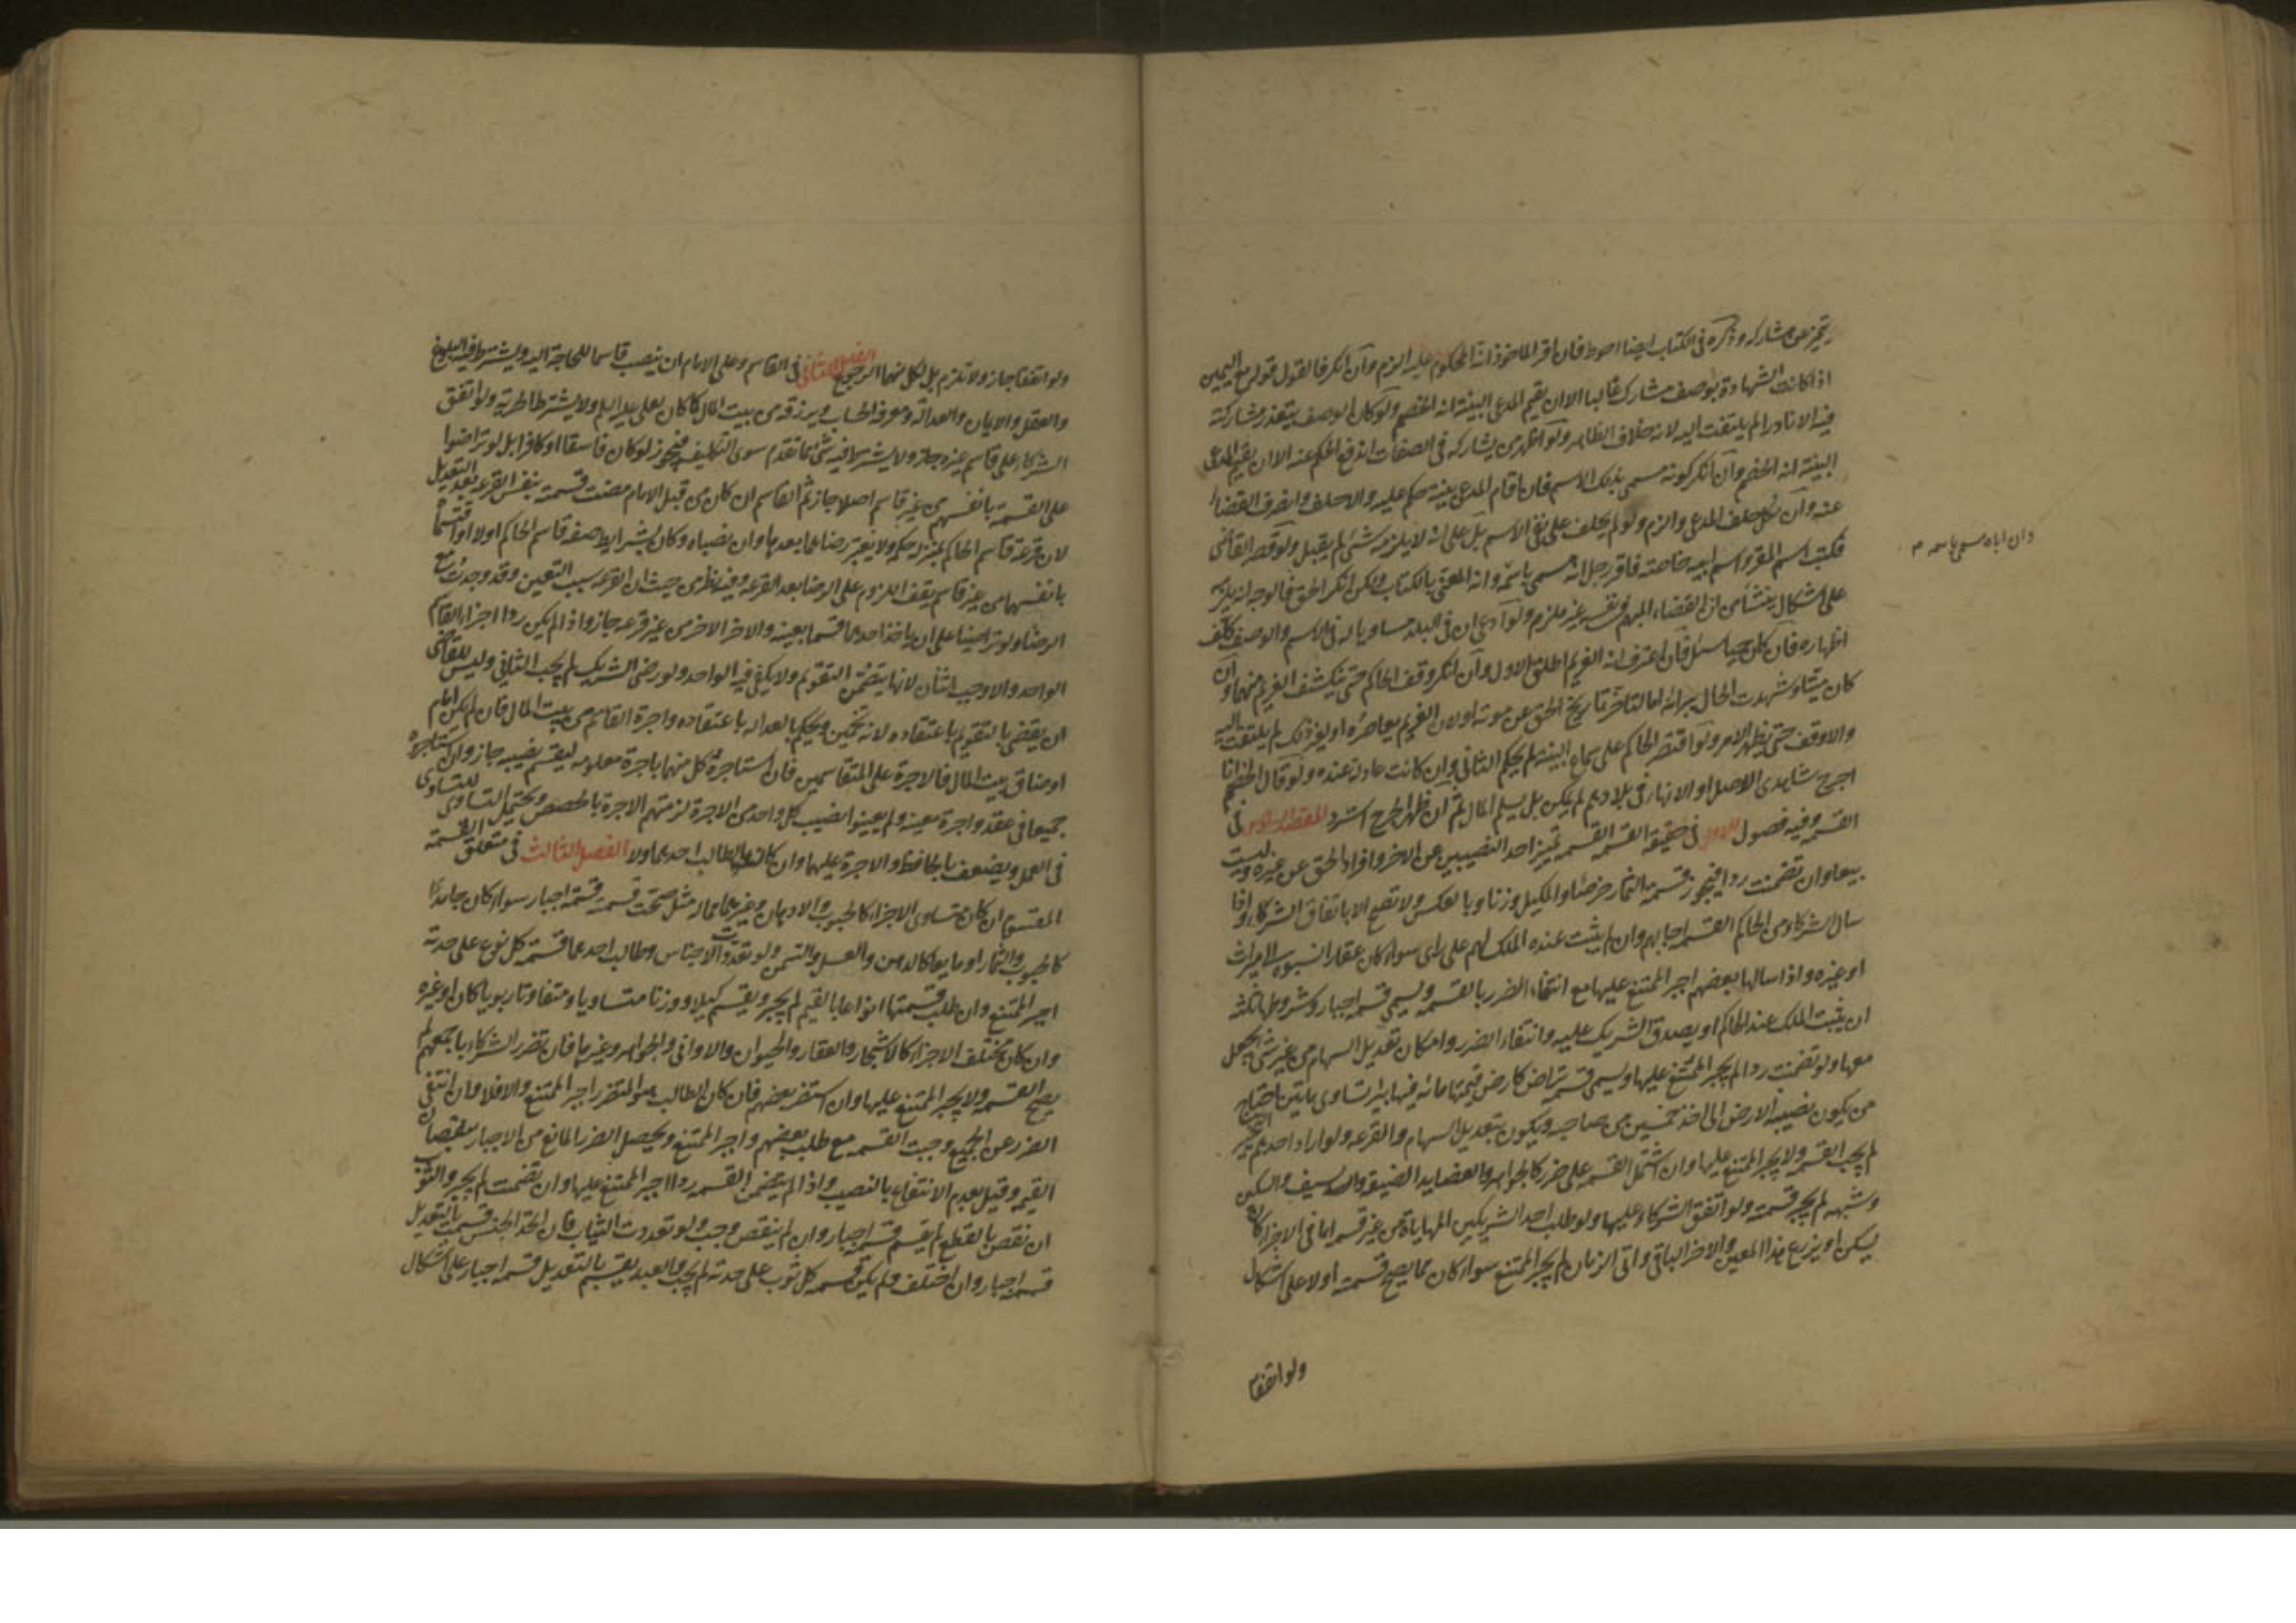 يتميز عن مشاركه وذكره في الكتاب ايضا احوط فان اقر الماخوذ انه المحكوم عليه الزم وان انكر فالقول قوله مع اليمين
اذا كانت الشهادة بوصف مشارك غالبا الا ان يقيم المدعي البينة انه الخصم ولو كان الوصف يتعذر مشاركته
فيه الا نادرا لم يلتفت اليه لانه خلاف الظاهر ولو اظهر من يشاركه في الصفات اندفع الحكم عنه الا ان يقيم المدعي
البينة انه الخصم وان انكر كونه مسمى بذلك الاسم فان اقام المدعي بينة حكم عليه والا حلف وانصرف القضاء
عنه وان نكل حلف المدعي والزم ولو لم يحلف على نفي الاسم بل على انه لا يلزمه شئ لم يقبل ولو قصر القاضي
فكتب اسم المقر واسم ابيه خاصة فاقر رجل انه مسمى باسمه وانه المعني بالكتاب ولكن انكر الحق فالوجه انه يلزم
وان اباه مسمى باسمه م
على اشكال ينشأ من ان القضاء المبهم في نفسه غير ملزم ولو ادعى ان في البلد مساويا له في الاسم والوصف كلف
اظهاره فان كان حيا سئل فان اعترف انه الغريم اطلق الاول وان انكر وقف الحاكم حتى ينكشف الغريم منهما وان
كان ميتا وشهدت الحال ببرائته اما لتاخر تاريخ الحق عن موته او لان الغريم يعاصره او لغير ذلك لم يلتفت اليه
والا وقف حتى يظهر الامر ولو اقتصر الحاكم على سماع البينة لم يحكم الثاني وان كانت عادلة عنده ولو قال الخصم انا
اجرح شاهدي الاصل او الانهار في بلادهم لم يكن بل يسلم المال ثم ان ظهر الجرح استرد المقصد السادس في
القسمة وفيه فصول الاول في حقيقة القسمة القسمة تميز احد النصيبين عن الاخر وافراد الحق عن غيره وليست
بيعا وان تضمنت ردا فيجوز قسمة الثمار خرصا والمكيل وزنا وبالعكس ولا تصح الا باتفاق الشركاء واذا
سال الشركاء من الحاكم القسمة اجابهم وان لم يثبت عنده الملك لهم على راى سواء كان عقارا نسبوه الى ميراث
او غيره واذا سالها بعضهم اجبر الممتنع عليها مع انتفاء الضرر بالقسمة ويسمى قسمة اجبار وشروطها ثلثة
ان يثبت الملك عند الحاكم او يصدق الشريك عليه وانتفاء الضرر وامكان تعديل السهام من غير شئ يجعل
معها ولو تضمنت ردا لم يجبر الممتنع عليها ويسمى قسمة تراض كارض قيمتها مائة فيها بئر تساوى مائتين احتاج
من يكون نصيبه الارض الى اخذ خمسين من صاحبه ويكون بتعديل السهام والقرعة ولو اراد احدهم التخيير
لم يجب القسمة ولا يجبر الممتنع عليها وان اشتمل القسمة على ضرر كالجواهر والعضايد الضيقة والسيف والسكين
وشبهه لم يجز قسمته ولو اتفق الشركاء عليها ولو طلب احد الشريكين المهاياة من غير قسمة اما في الاجزاء كان
يسكن او يزرع هذا المعين والاخر الباقي واتى الزمان لم يجبر الممتنع سواء كان مما يصح قسمته اولا على اشكال
ولو اتفقا م
ولو اتفقا جاز ولا تلزم بل لكل منهما الرجوع الفصل الثاني في القاسم وعلى الامام ان ينصب قاسما للحاجة اليه ويشترط فيه البلوغ
والعقل والايمان والعدالة ومعرفة الحساب ويرزقه من بيت المال كما كان لعلي عليه السلم ولا يشترط الحرية ولو اتفق
الشركاء على قاسم غيره جاز ولا يشترط فيه شئ مما تقدم سوى التكليف فيجوز لو كان فاسقا او كافرا بل لو تراضوا
على القسمة بانفسهم من غير قاسم اصلا جاز ثم القاسم ان كان من قبل الامام مضت قسمته بنفس القرعة بعد التعديل
لان قرعة قاسم الحاكم بمنزلة حكمه ولا يعتبر رضاهما بعدها وان نصباه وكان بشرايط صفة قاسم الحاكم اولا او اقتسما
بانفسهما من غير قاسم يقف اللزوم على الرضا بعد القرعة وفيه نظر من حيث ان القرعة سبب التعيين وقد وجدت مع
الرضا ولو تراضيا على ان ياخذ احدهما قسما بعينه والاخر الاخر من غير قرعة جاز واذا لم يكن ردا اجزأ القاسم
الواحد والا وجب اثنان لانها يتضمن التقويم ولا يكفي فيه الواحد ولو رضى الشريك لم يجب الثاني وليس للقاضي
ان يقضي بالتقويم باعتقاده لانه تخمين ويحكم بالعدالة باعتقاده واجرة القاسم من بيت المال فان لم يكن امام
او ضاق بيت المال فالاجرة على المتقاسمين فان استاجره كل منهما باجرة معلومة ليقسم نصيبه جاز وان استاجروه
جميعا في عقد واجرة معينة ولم يعينوا نصيب كل واحد من الاجرة لزمتهم الاجرة بالحصص ويحتمل التساوى للتساوى
في العمل ويضعف بالحافظ والاجرة عليهما وان كان الطالب احدهما ولا الفصل الثالث في متعلق القسمة
المقسوم ان كان متساوى الاجزاء كالحبوب والادهان وغيرهما مما له مثل صحت قسمته قسمة اجبار سواء كان جامدا
كالحبوب والثمار او مايعا كالدهن والعسل والسمن ولو تعددت الاجناس وطالب احدهما قسمة كل نوع على حدته
اجبر الممتنع وان طلب قسمتها انواعا بالقيم لم يجبر ويقسم كيلا ووزنا متساويا ومتفاوتا ربويا كان او غيره
وان كان مختلف الاجزاء كالاشجار والعقار والحيوان والاواني والجواهر وغيرها فان تضرر الشركاء باجمعهم لم
يصح القسمة ولا يجبر الممتنع عليها وان استضر بعضهم فان كان الطالب هو المتضرر اجبر الممتنع والا فلا وان انتفى
الضرر عن الجميع وجبت القسمة مع طلب بعضهم واجبر الممتنع ويحصل الضرر المانع من الاجبار بنقصان
القيمة وقيل بعدم الانتفاع بالنصيب واذا لم يتضمن القسمة ردا اجبر الممتنع عليها وان تضمنت لم يجبر والثوب
ان نقص بالقطع لم يقسم قسمة اجبار وان لم ينقص وجب ولو تعددت الثياب فان اتحد الجنس قسمت بالتعديل
قسمة اجبار وان اختلف ولم يكن قسمة كل ثوب على حدته لم يجب والعبيد يقسم بالتعديل قسمة اجبار على اشكال